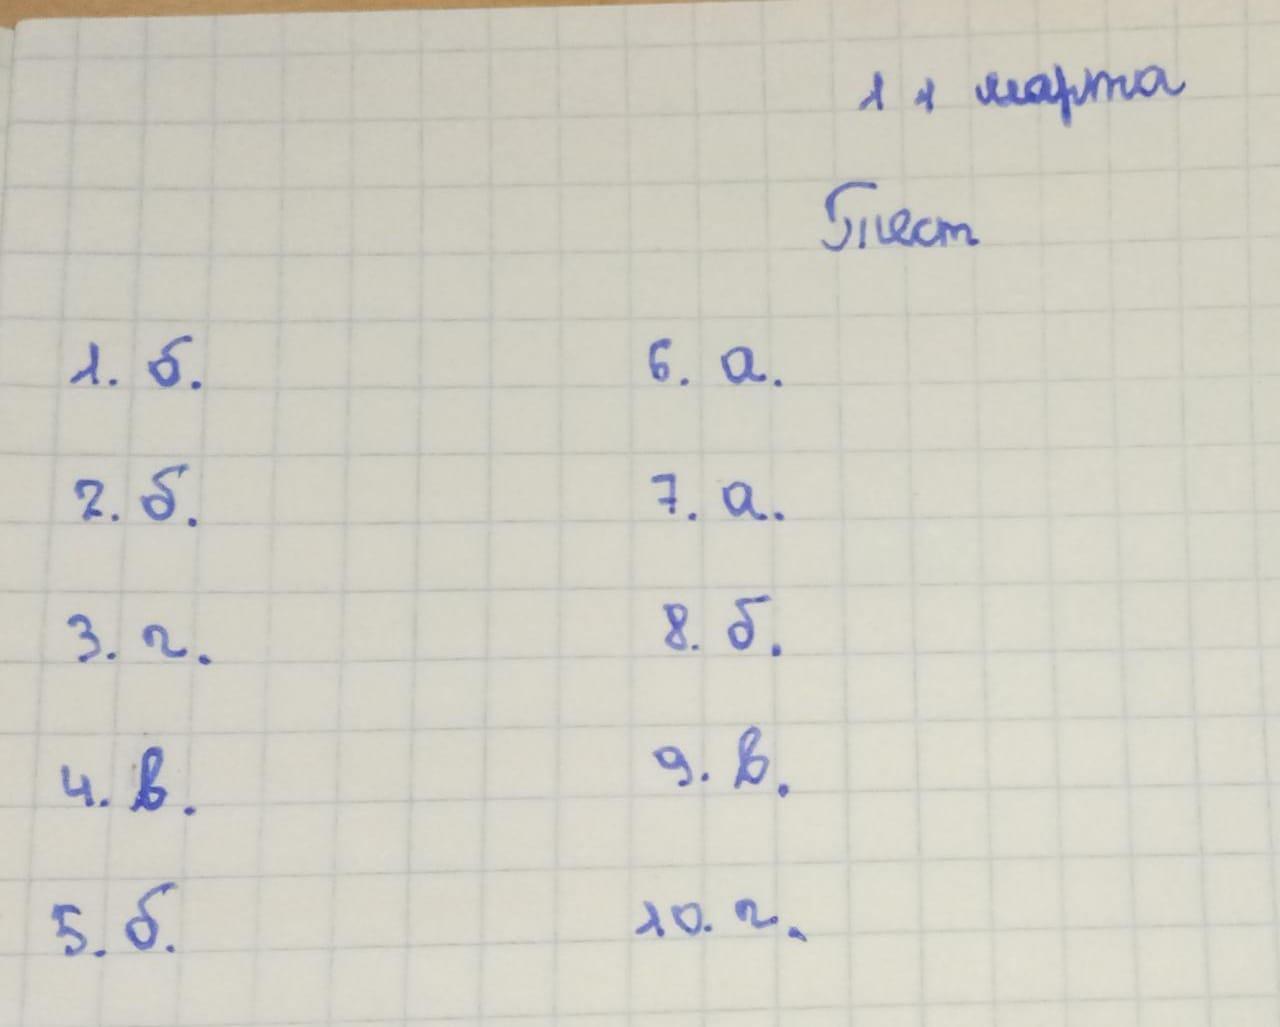 11 марта
Тест
1. б.
2. б.
3. г.
4. в.
5. б.
6. а.
7. а.
8. б.
9. в.
10. г.